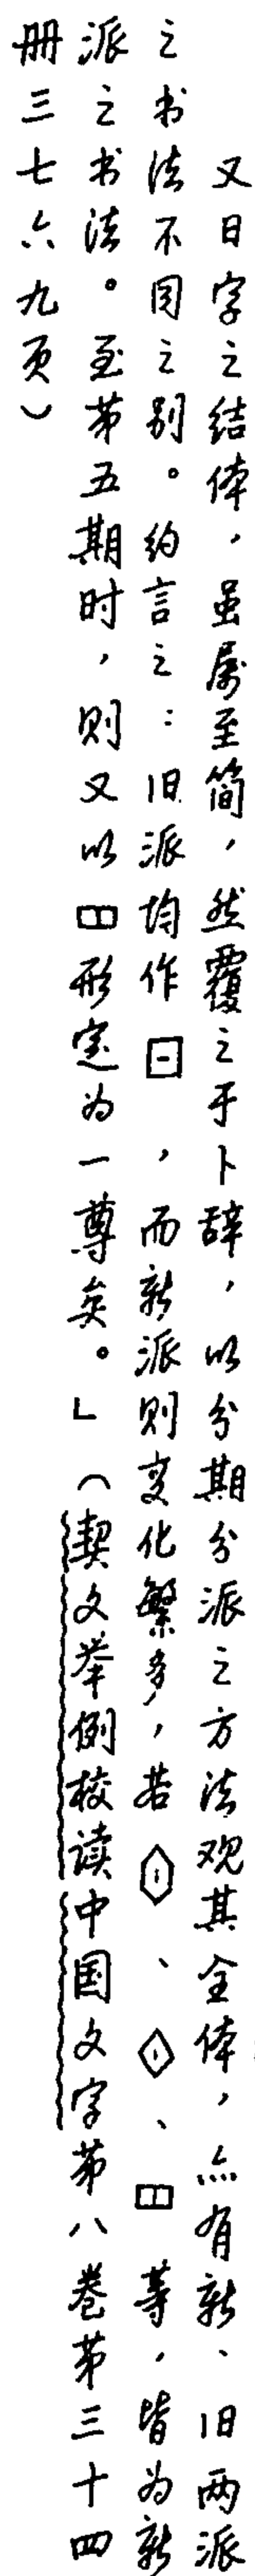 又日字之结体，虽属至简，然覆之于卜辞，以分期分派之方法观其全体，亦有新、旧两派
之书法不同之别。约言之：旧派均作，而新派则变化繁多，若、、等，皆为新
派之书法。至第五期时，则又以形定为一尊矣。」（契文举例校读中国文字第八卷第三十四
册三七六九页）